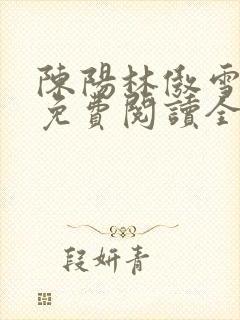 陳陽林傲雪
免費閱讀全
段妍青